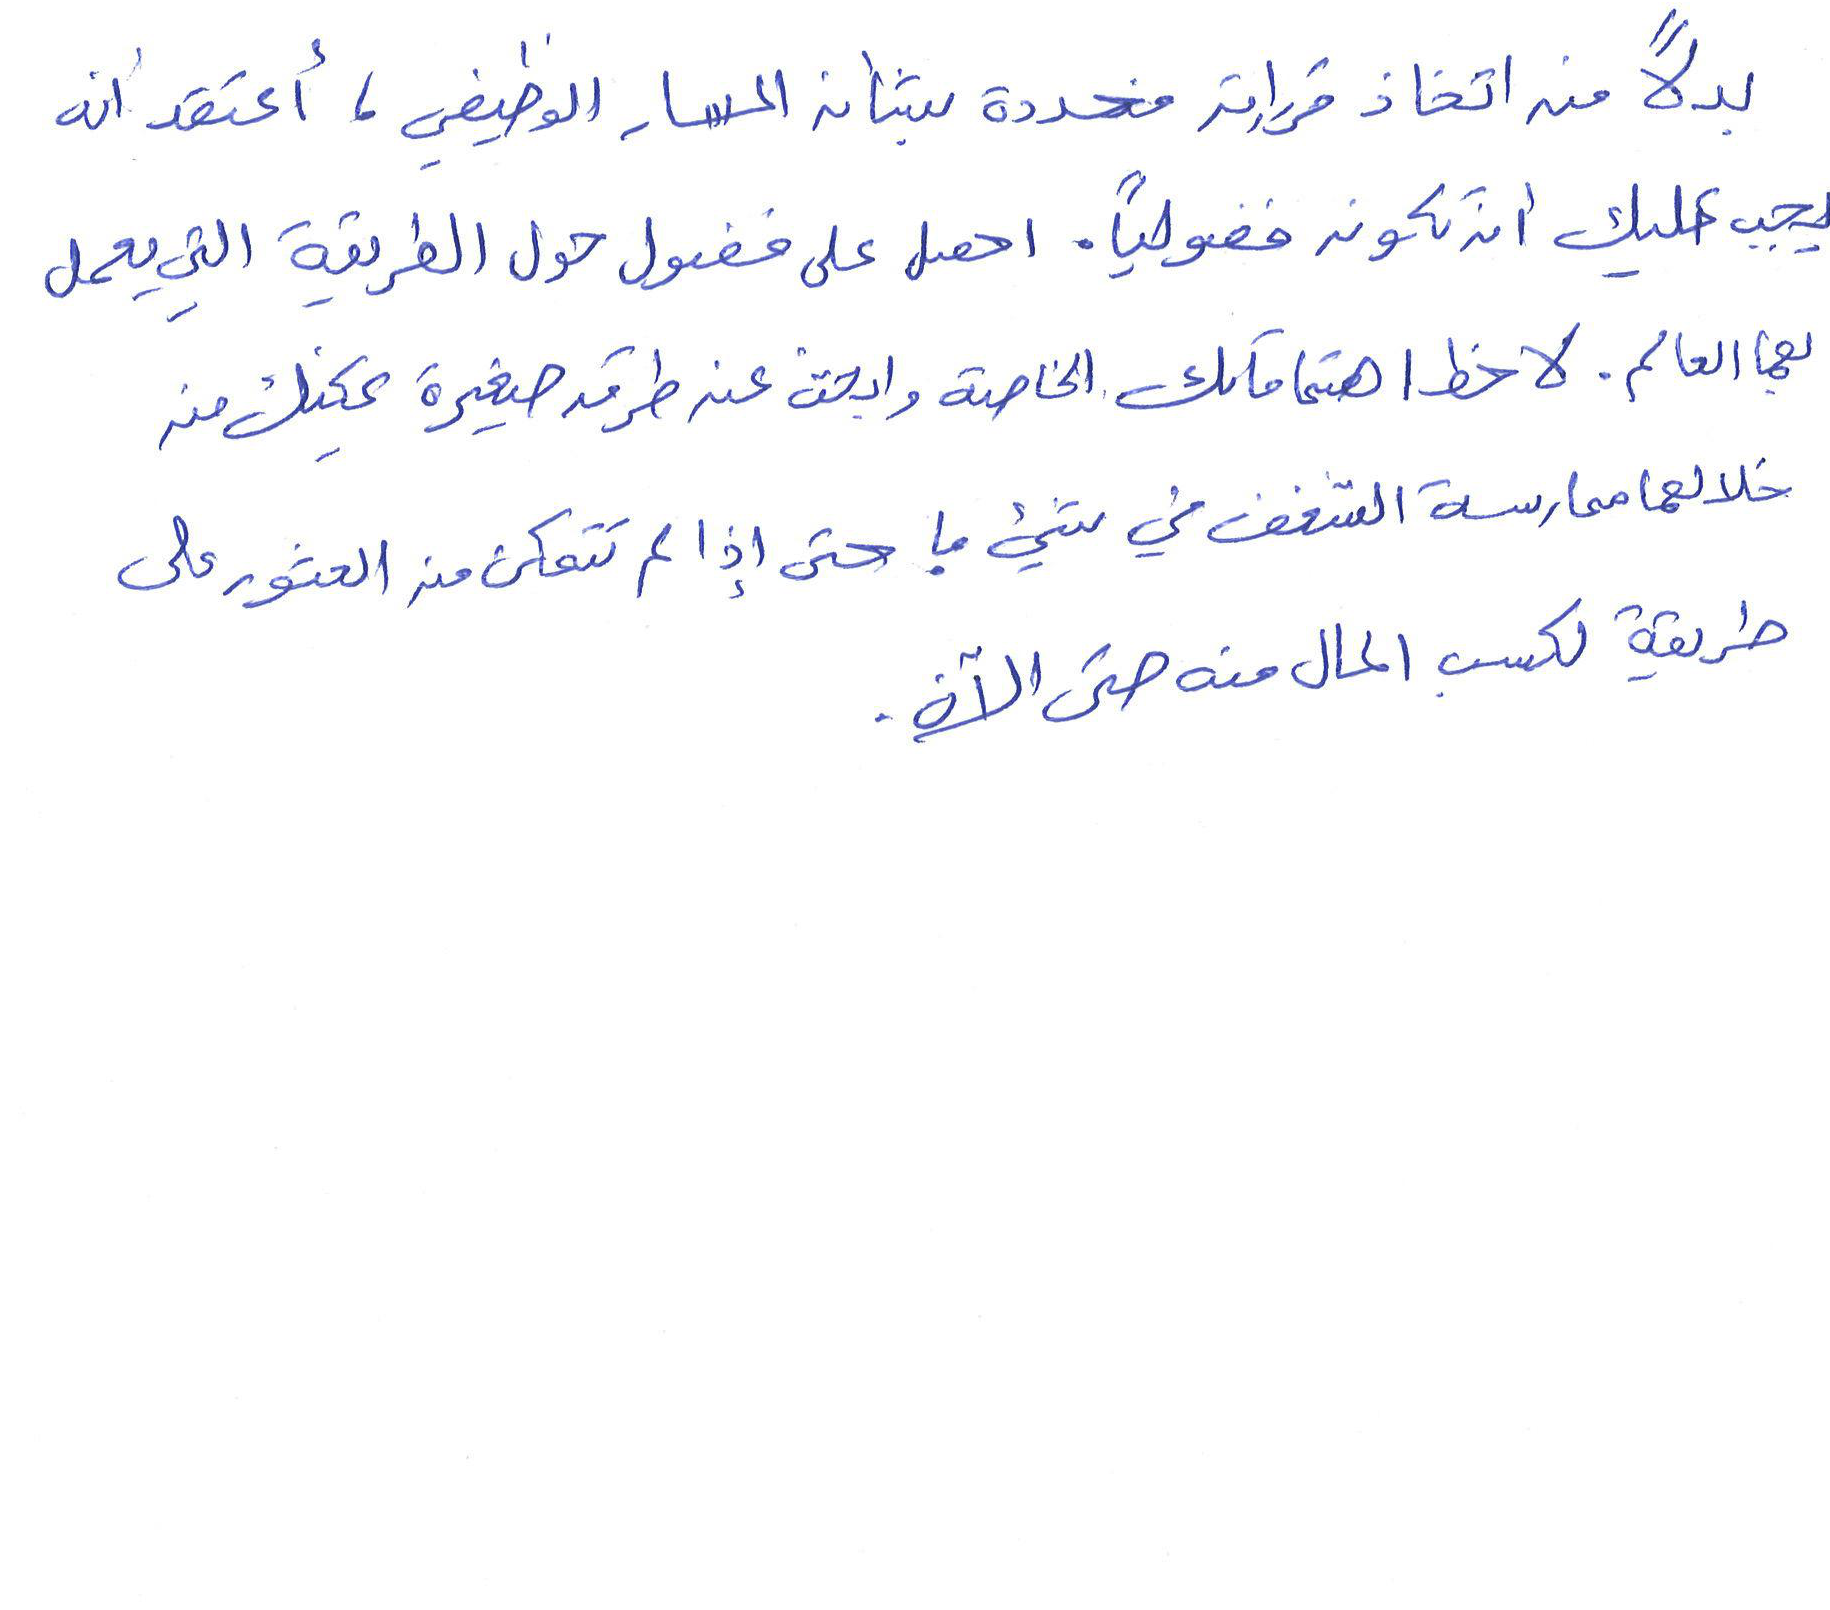 بدلاً من اتخاذ قرارات محددة بشأن المسار الوظيفي ، أعتقد أنه
يجب عليك أن تكون فضولياً. احصل على فضول حول الطريقة التي يعمل
بها العالم. لاحظ اهتماماتك الخاصة وابحث عن طرق صغيرة يمكنك من
خلالها ممارسة الشغف في شيء ما حتى إذا لم تتمكن من العثور على
طريقة لكسب المال منه حتى الآن.